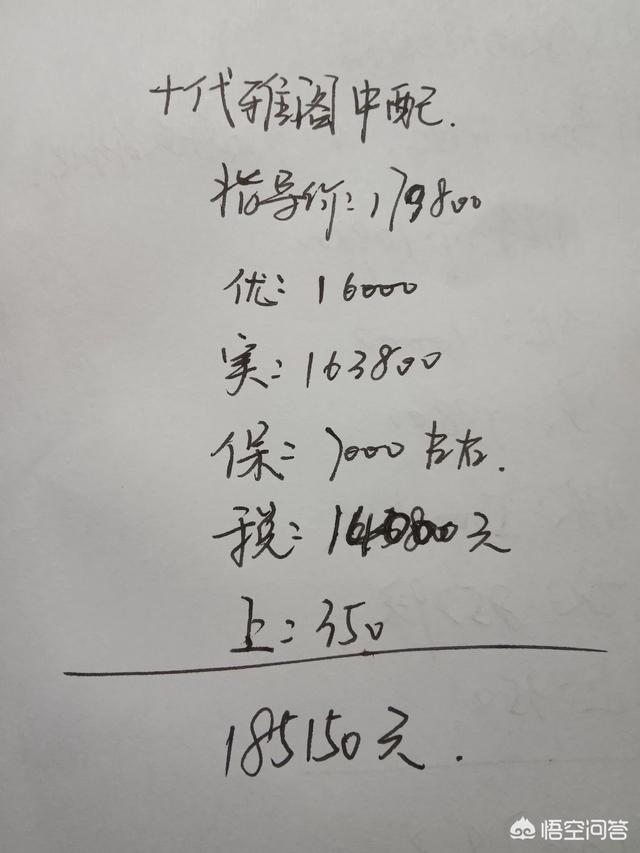 十代雅阁中配.
指导价:179800
优:16000
实:163800
保:7000左右.
税: 元
上:350
185150元.
悟空问答